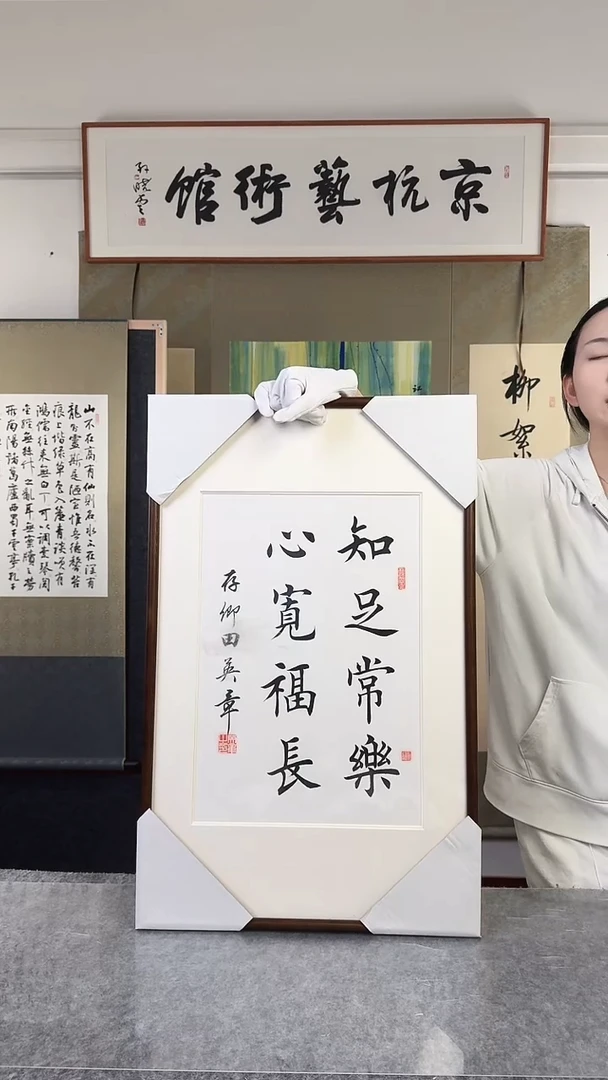 京杭藝術館
孙晓云
知足常樂
心寬福長
存卿田英章
山不在高有仙則名水不在深有
龍則靈斯是陋室惟吾德馨苔
痕上階緑草色入簾青談笑有
鴻儒往来無白丁可以調素琴閲
金經無絲竹之亂耳無案牘之勞
形南陽諸葛廬西蜀子雲亭孔子
柳絮